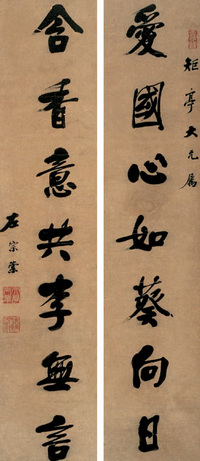 矩亭大兄屬
愛國心如葵向日
含香意共李無言
左宗棠